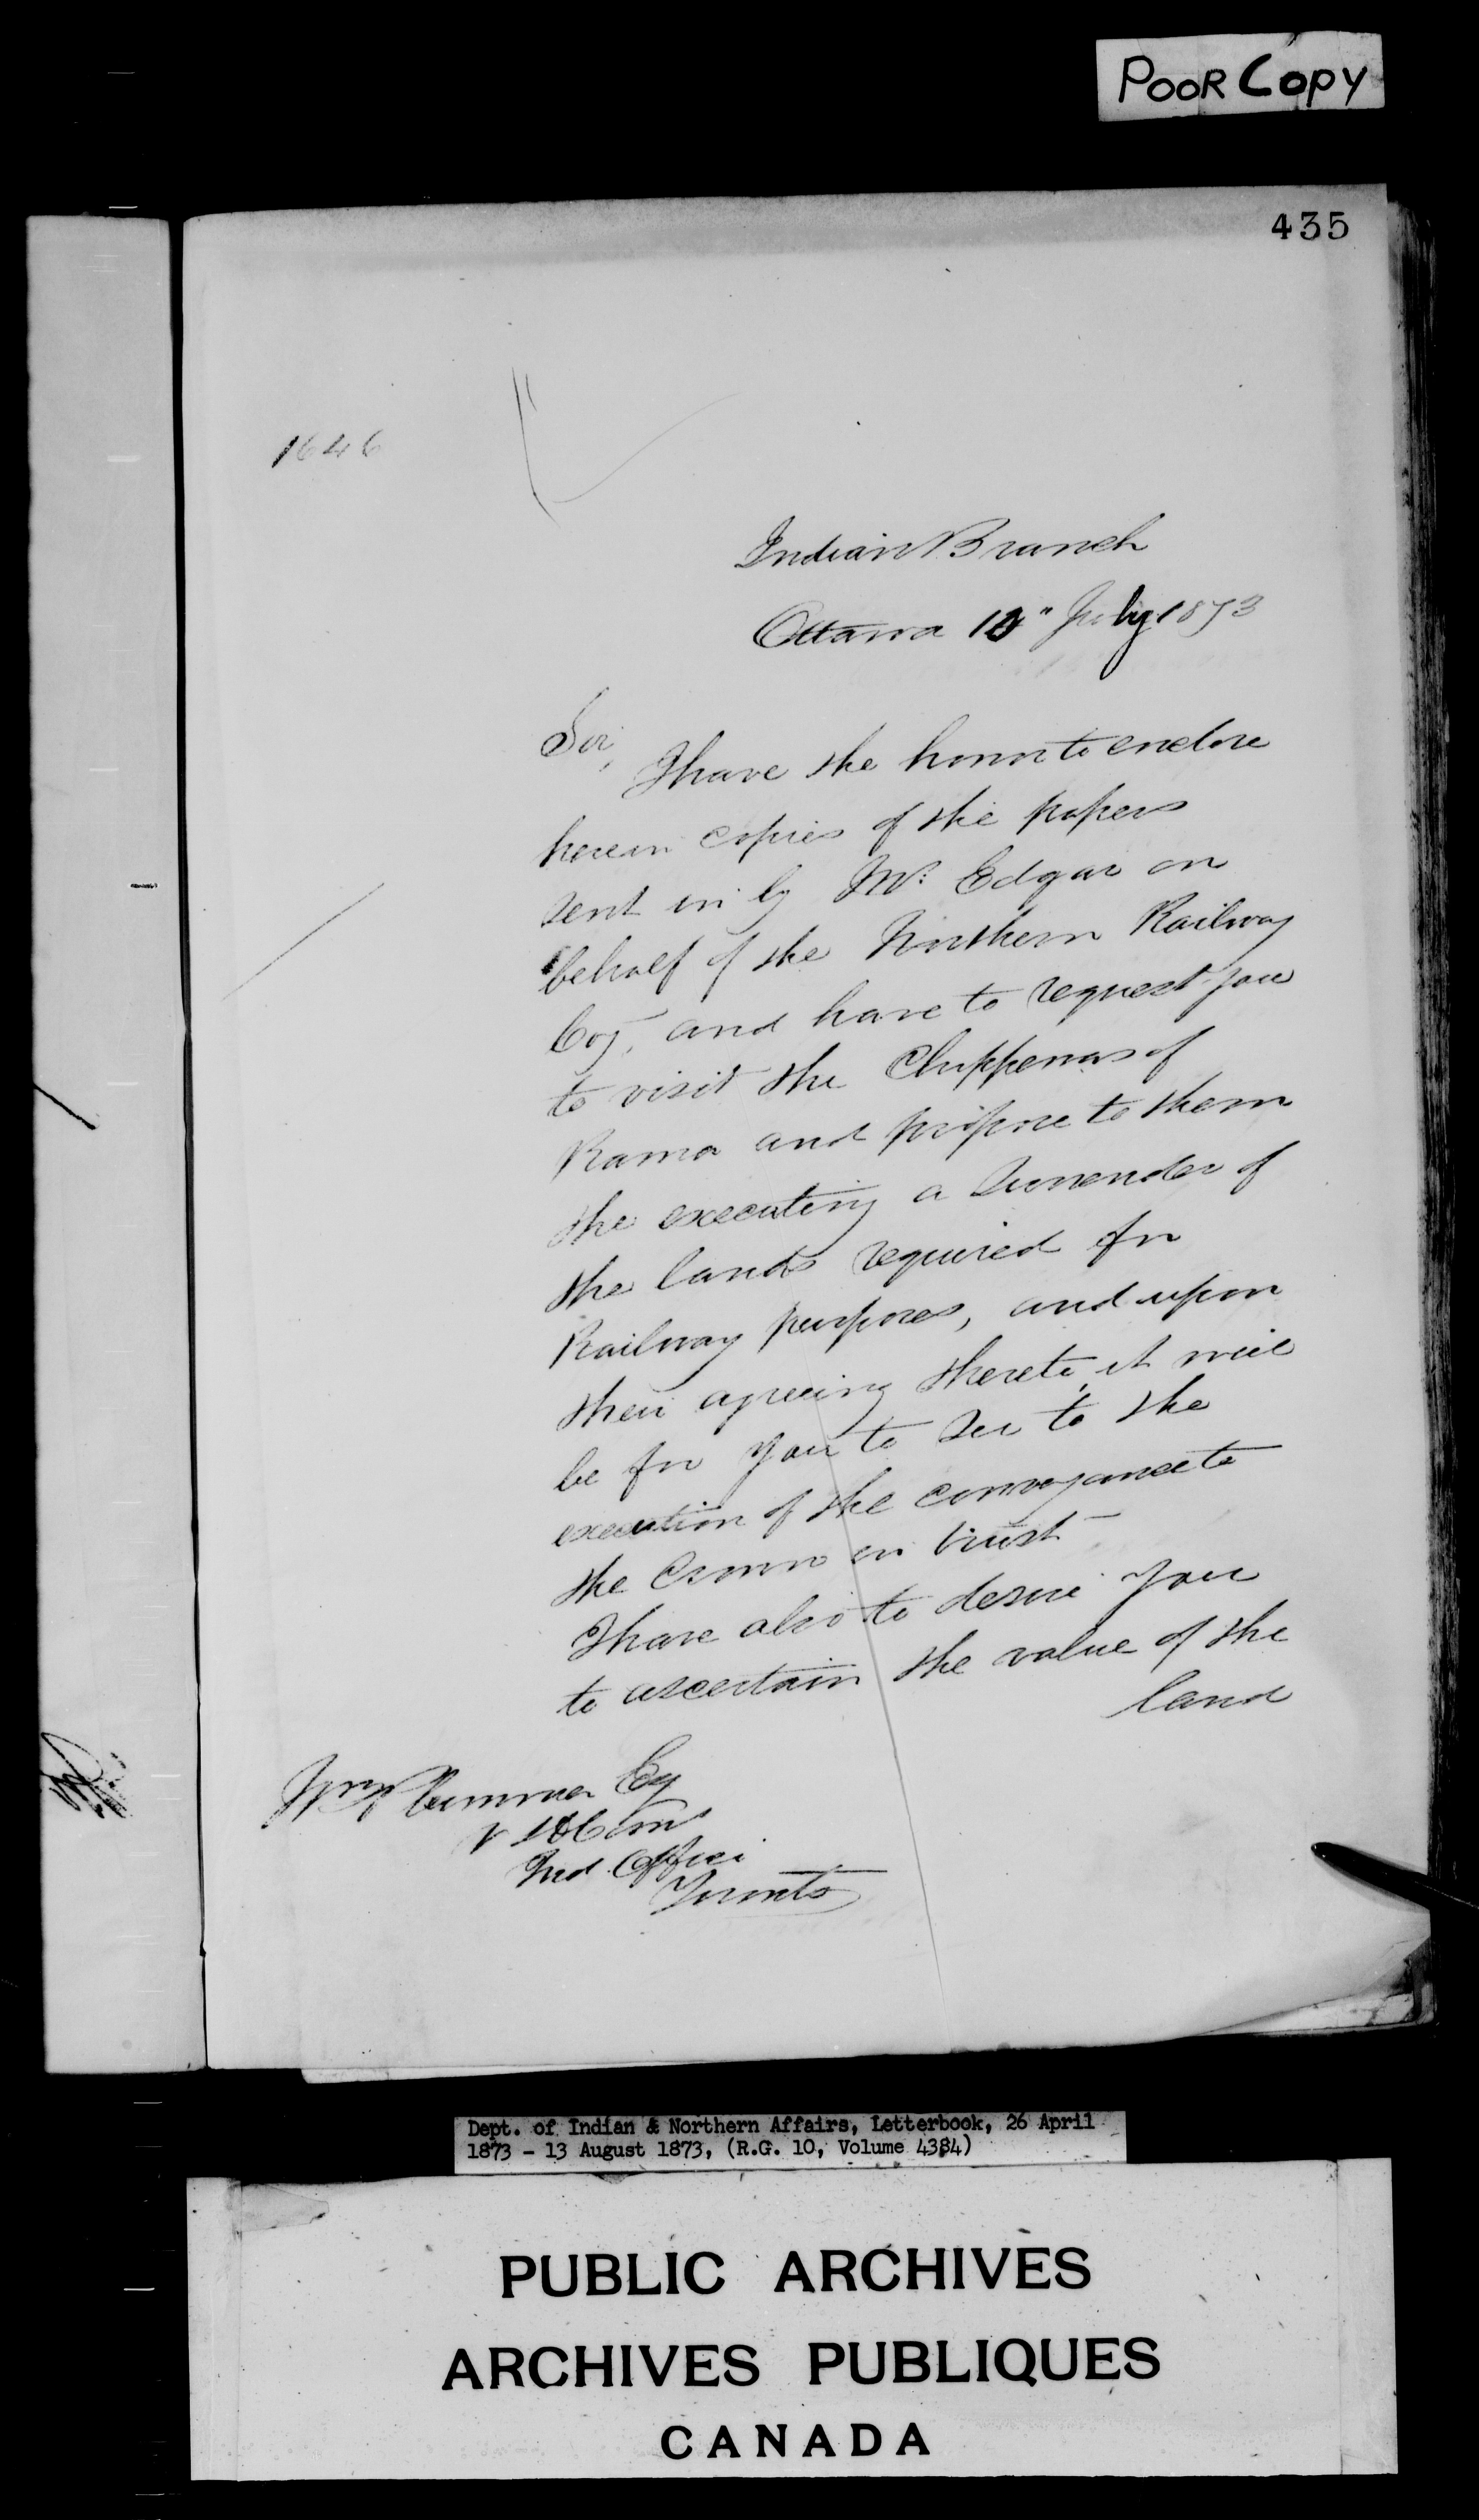 POOR COPY
435
1646
Indian Branch
Ottawa 10" July 1873
Sir,
I have the honor to enclose
herein copies of the papers
sent in by Mr. Edgar on
behalf of the Northern Railway
Coy, and have to request you
to visit the Chippewas of
Rama and propose to them
the executing a surrender of
the lands required for
Railway purposes, and upon
their agreeing thereto, it will
be for you to see to the
execution of the conveyance to
the Crown in trust
I have also to desire you
to ascertain the value of the
land
Wm Plummer Esq
Ind. Office
Toronto
Dept. of Indian & Northern Affairs, Letterbook, 26 April
1873 - 13 August 1873, (R.G. 10, Volume 4384)
PUBLIC ARCHIVES
ARCHIVES PUBLIQUES
CANADA